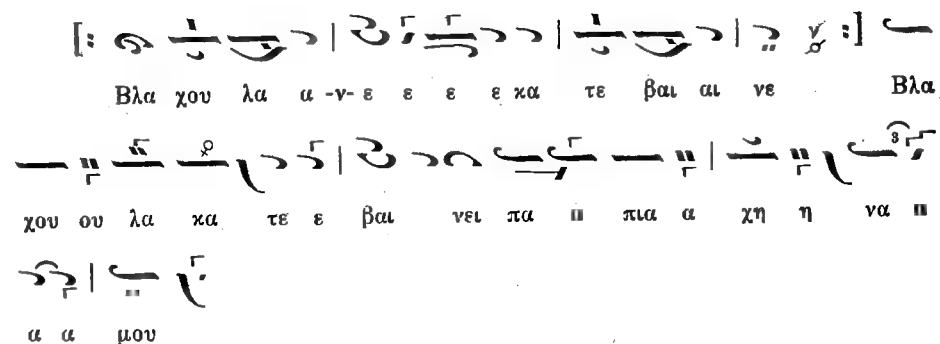 Βλα χου λα α -ν- ε ε ε ε κα τε βαι αι νε Βλα
χου ου λα κα τε ε βαι νει πα π πια α χη η να π
α α μου